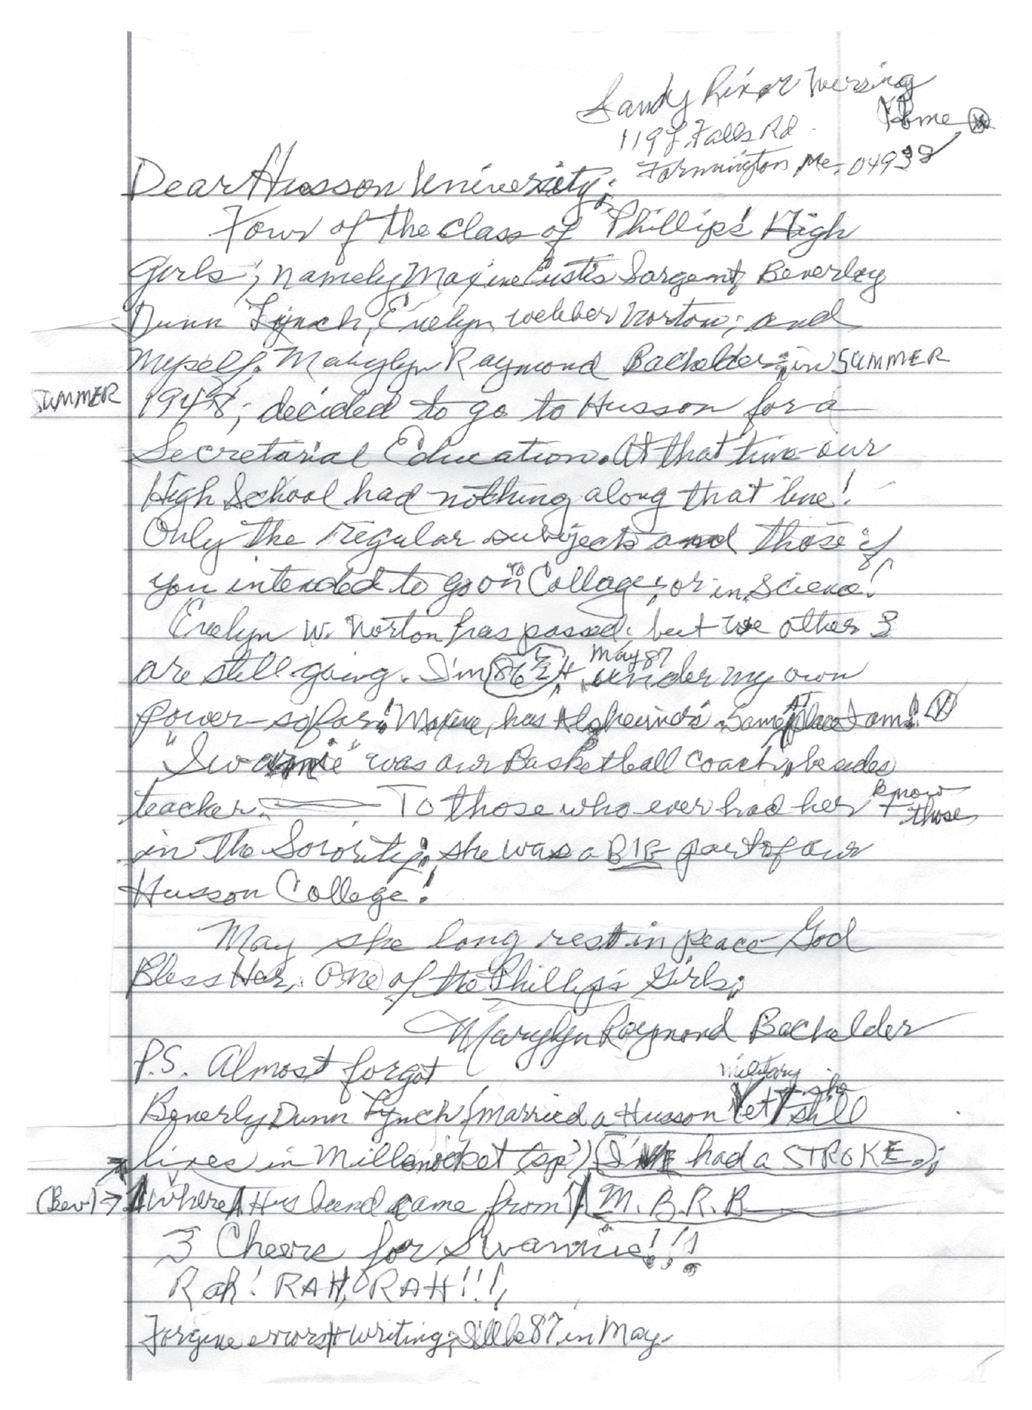 Sandy River Nursing
Home
119 Falls Rd.
Farmington, Me. 04938
Dear Husson University;
Four of the class of Phillips' High
Girls; namely Maxine Eustis Sargent, Beverley
Dunn Lynch, Evelyn Webber Norton; and
Myself. Marylyn Raymond Bachelder; in SUMMER
SUMMER 1948; decided to go to Husson for a
Secretarial Education. At that time our
High School had nothing along that line!
Only the regular subjects and those if
you intended to go on to College; or in Science!
Evelyn W. Norton has passed; but we other 3
are still going. I'm 86 1/2 + May 87 under my own
power - so far! Maxine, has same place AT I am!
"Swannie" was our Basketball coach, besides
teacher. To those who ever had her + those
in the Sorority; she was a BIG part of our
Husson College!
May she long rest in peace God
Bless Her. One of the Phillips Girls;
Marylyn Raymond Bachelder
P.S. Almost forgot
Beverly Dunn Lynch (married a Husson Military Vet + she still
lives in (sp?) (I've had a STROKE.);
(Bev) → where Husband came from) M.B.R.B
3 Cheers for Swannie!!!
Rah! RAH, RAH!!!,
Forgive errors + writing; I'll be 87 in May.